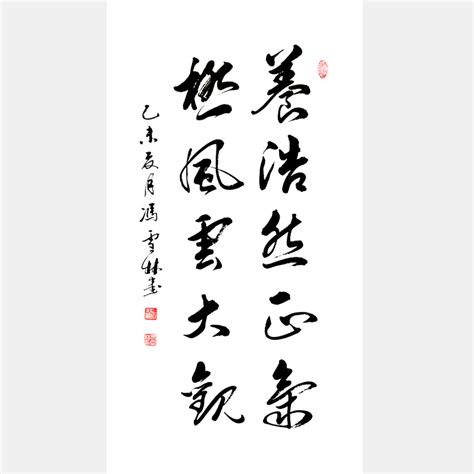 養浩然正氣
極風雲大觀
乙未夏月馮雪林書